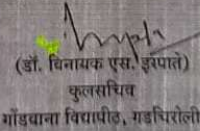 (डॉ. विनायक एस. इरपाते)
कुलसचिव
गोंडवाना विद्यापीठ, गडचिरोली